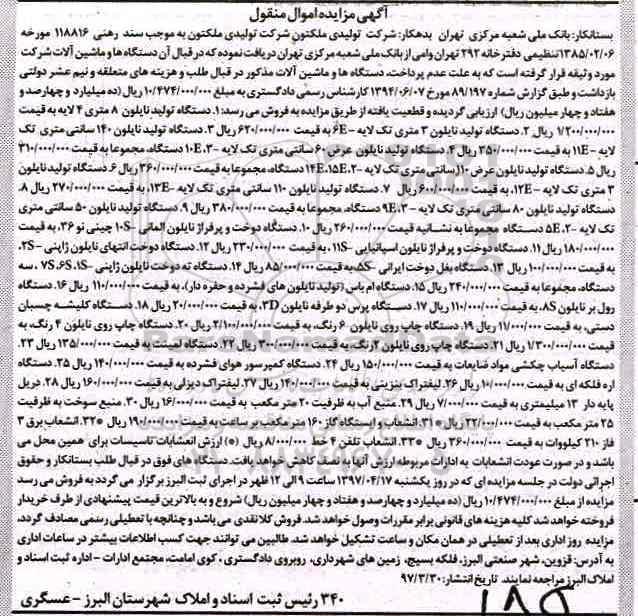 آگهی مزایده اموال منقول
بستانکار: بانک ملی شعبه مرکزی تهران بدهکار: شرکت تولیدی ملکتون شرکت تولیدی ملکتون به موجب سند رهنی ۱۱۸۸۱۶ مورخه
۱۳۸۵/۰۲/۰۶ تنظیمی دفترخانه ۲۹۲ تهران وامی از بانک ملی شعبه مرکزی تهران دریافت نموده که در قبال آن دستگاه ها و ماشین آلات شرکت
مورد وثیقه قرار گرفته است که به علت عدم پرداخت، دستگاه ها و ماشین آلات مذکور در قبال طلب و هزینه های متعلقه و نیم عشر دولتی
بازداشت و طبق گزارش شماره ۸۹/۱۹۷ مورخ ۱۳۹۴/۰۶/۰۷ کارشناس رسمی دادگستری به مبلغ ۱۰/۴۷۴/۰۰۰/۰۰۰ ریال (ده میلیارد و چهارصد و
هفتاد و چهار میلیون ریال) ارزیابی گردیده و قطعیت یافته از طریق مزایده به فروش می رسد: ۱. دستگاه تولید نایلون ۸ متری ۴ لایه به قیمت
۱/۲۰۰/۰۰۰/۰۰۰ ریال ۲. دستگاه تولید نایلون ۳ متری تک لایه -6E به قیمت ۶۲۰/۰۰۰/۰۰۰ ریال ۳. دستگاه تولید نایلون ۱۴۰ سانتی متری تک
لایه -11E به قیمت ۳۵۰/۰۰۰/۰۰۰ ریال ۴. دستگاه تولید نایلون عرض ۶۰ سانتی متری تک لایه -10E،۳ دستگاه، مجموعا به قیمت ۳۱۰/۰۰۰/۰۰۰
ریال ۵. دستگاه تولید نایلون عرض ۱۱۰ سانتی متری تک لایه -14E،15E،۲ دستگاه، مجموعا به قیمت ۳۶۰/۰۰۰/۰۰۰ ریال ۶. دستگاه تولید نایلون
۳ متری تک لایه -12E، به قیمت ۶۰۰/۰۰۰/۰۰۰ ریال ۷. دستگاه تولید نایلون ۱۱۰ سانتی متری تک لایه -13E، به قیمت ۲۷۰/۰۰۰/۰۰۰ ریال ۸.
دستگاه تولید نایلون ۸۰ سانتی متری تک لایه -9E،۳ دستگاه، مجموعا به قیمت ۳۸۰/۰۰۰/۰۰۰ ریال ۹. دستگاه تولید نایلون ۵۰ سانتی متری
تک لایه -5E،۲ دستگاه مجموعا به نشانیه قیمت ۲۶۰/۰۰۰/۰۰۰ ریال ۱۰. دستگاه دوخت و پرفراژ نایلون المانی -10S چینی نو ۳۶، به قیمت
۱۸۰/۰۰۰/۰۰۰ ریال ۱۱. دستگاه دوخت و پرفراژ نایلون اسپانیایی -11S، به قیمت ۲۳۰/۰۰۰/۰۰۰ ریال ۱۲. دستگاه دوخت انتهای نایلون ژاپنی -2S،
به قیمت ۱۰۰/۰۰۰/۰۰۰ ریال ۱۳. دستگاه بغل دوخت ایرانی -5S، به قیمت ۸۵/۰۰۰/۰۰۰ ریال ۱۴. دستگاه ته دوخت نایلون ژاپنی -7S،6S،1S، سه
دستگاه، مجموعا به قیمت ۲۴۰/۰۰۰/۰۰۰ ریال ۱۵. دستگاه ام باس (تولید نایلون های فشرده و حفره دار)، به قیمت ۱۱۰/۰۰۰/۰۰۰ ریال ۱۶. دستگاه
رول بر نایلون 8S، به قیمت ۱۱۰/۰۰۰/۰۰۰ ریال ۱۷. دستگاه پرس دو طرفه نایلون 3D، به قیمت ۲۰/۰۰۰/۰۰۰ ریال ۱۸. دستگاه کلیشه چسبان
دستی، به قیمت ۱۱/۰۰۰/۰۰۰ ریال ۱۹. دستگاه چاپ روی نایلون ۶ رنگ، به قیمت ۲/۱۰۰/۰۰۰/۰۰۰ ریال ۲۰. دستگاه چاپ روی نایلون ۴ رنگ، به
قیمت ۱/۳۰۰/۰۰۰/۰۰۰ ریال ۲۱. دستگاه چاپ روی نایلون ۲ رنگ، به قیمت ۳۰۰/۰۰۰/۰۰۰ ریال ۲۲. دستگاه لمینت به قیمت ۱۳۵/۰۰۰/۰۰۰ ریال ۲۳.
دستگاه آسیاب چکشی مواد ضایعات به قیمت ۱۵۰/۰۰۰/۰۰۰ ریال ۲۴. دستگاه کمپرسور هوای فشرده به قیمت ۱۴۰/۰۰۰/۰۰۰ ریال ۲۵. دستگاه
اره فلکه ای به قیمت ۱۰/۰۰۰/۰۰۰ ریال ۲۶. لیفتراک بنزینی به قیمت ۱۴۰/۰۰۰/۰۰۰ ریال ۲۷. لیفتراک دیزلی به قیمت ۱۶۰/۰۰۰/۰۰۰ ریال ۲۸. دریل
پایه دار ۱۳ میلیمتری به قیمت ۷/۰۰۰/۰۰۰ ریال ۲۹. منبع آب به ظرفیت ۲۰ متر مکعب به قیمت ۱۶/۰۰۰/۰۰۰ ریال ۳۰. منبع سوخت به ظرفیت
۲۵ متر مکعب به قیمت ۲۲/۰۰۰/۰۰۰ ریال *۳۱. انشعاب و ایستگاه گاز ۱۶۰ متر مکعب بر ساعت به قیمت ۱۹۰/۰۰۰/۰۰۰ ریال *۳۲. انشعاب برق ۳
فاز ۲۱۰ کیلووات به قیمت ۳۶۰/۰۰۰/۰۰۰ ریال *۳۳. انشعاب تلفن ۴ خط ۸/۰۰۰/۰۰۰ ریال (*) ارزش انعشابات تاسیسات برای همین محل می
باشد و در صورت عودت انشعابات به ادارات مربوطه ارزش آنها به نصف کاهش خواهد یافت. دستگاه های فوق در قبال طلب بستانکار و حقوق
اجرائی دولت در جلسه مزایده ای که در روز یکشنبه ۱۳۹۷/۰۴/۱۷ ساعت ۹ الی ۱۲ ظهر در اجرای ثبت البرز برگزار می گردد به فروش می رسد
مزایده از مبلغ ۱۰/۴۷۴/۰۰۰/۰۰۰ ریال (ده میلیارد و چهارصد و هفتاد و چهار میلیون ریال) شروع و به بالاترین قیمت پیشنهادی از طرف خریدار
فروخته خواهد شد کلیه هزینه های قانونی برابر مقررات وصول خواهد شد. فروش کلا نقدی می باشد و چنانچه با تعطیلی رسمی مصادف گردد،
مزایده روز اداری بعد از تعطیلی در همان مکان و ساعت تشکیل خواهد شد. طالبین می توانند جهت کسب اطلاعات بیشتر در ساعات اداری
به آدرس: قزوین، شهر صنعتی البرز، فلکه بسیج، زمین های شهرداری، روبروی دادگستری، کوی امامت، مجتمع ادارات - اداره ثبت اسناد و
املاک البرز مراجعه نمایند. تاریخ انتشار: ۹۷/۳/۳۰
۳۴۰ رئیس ثبت اسناد و املاک شهرستان البرز - عسگری